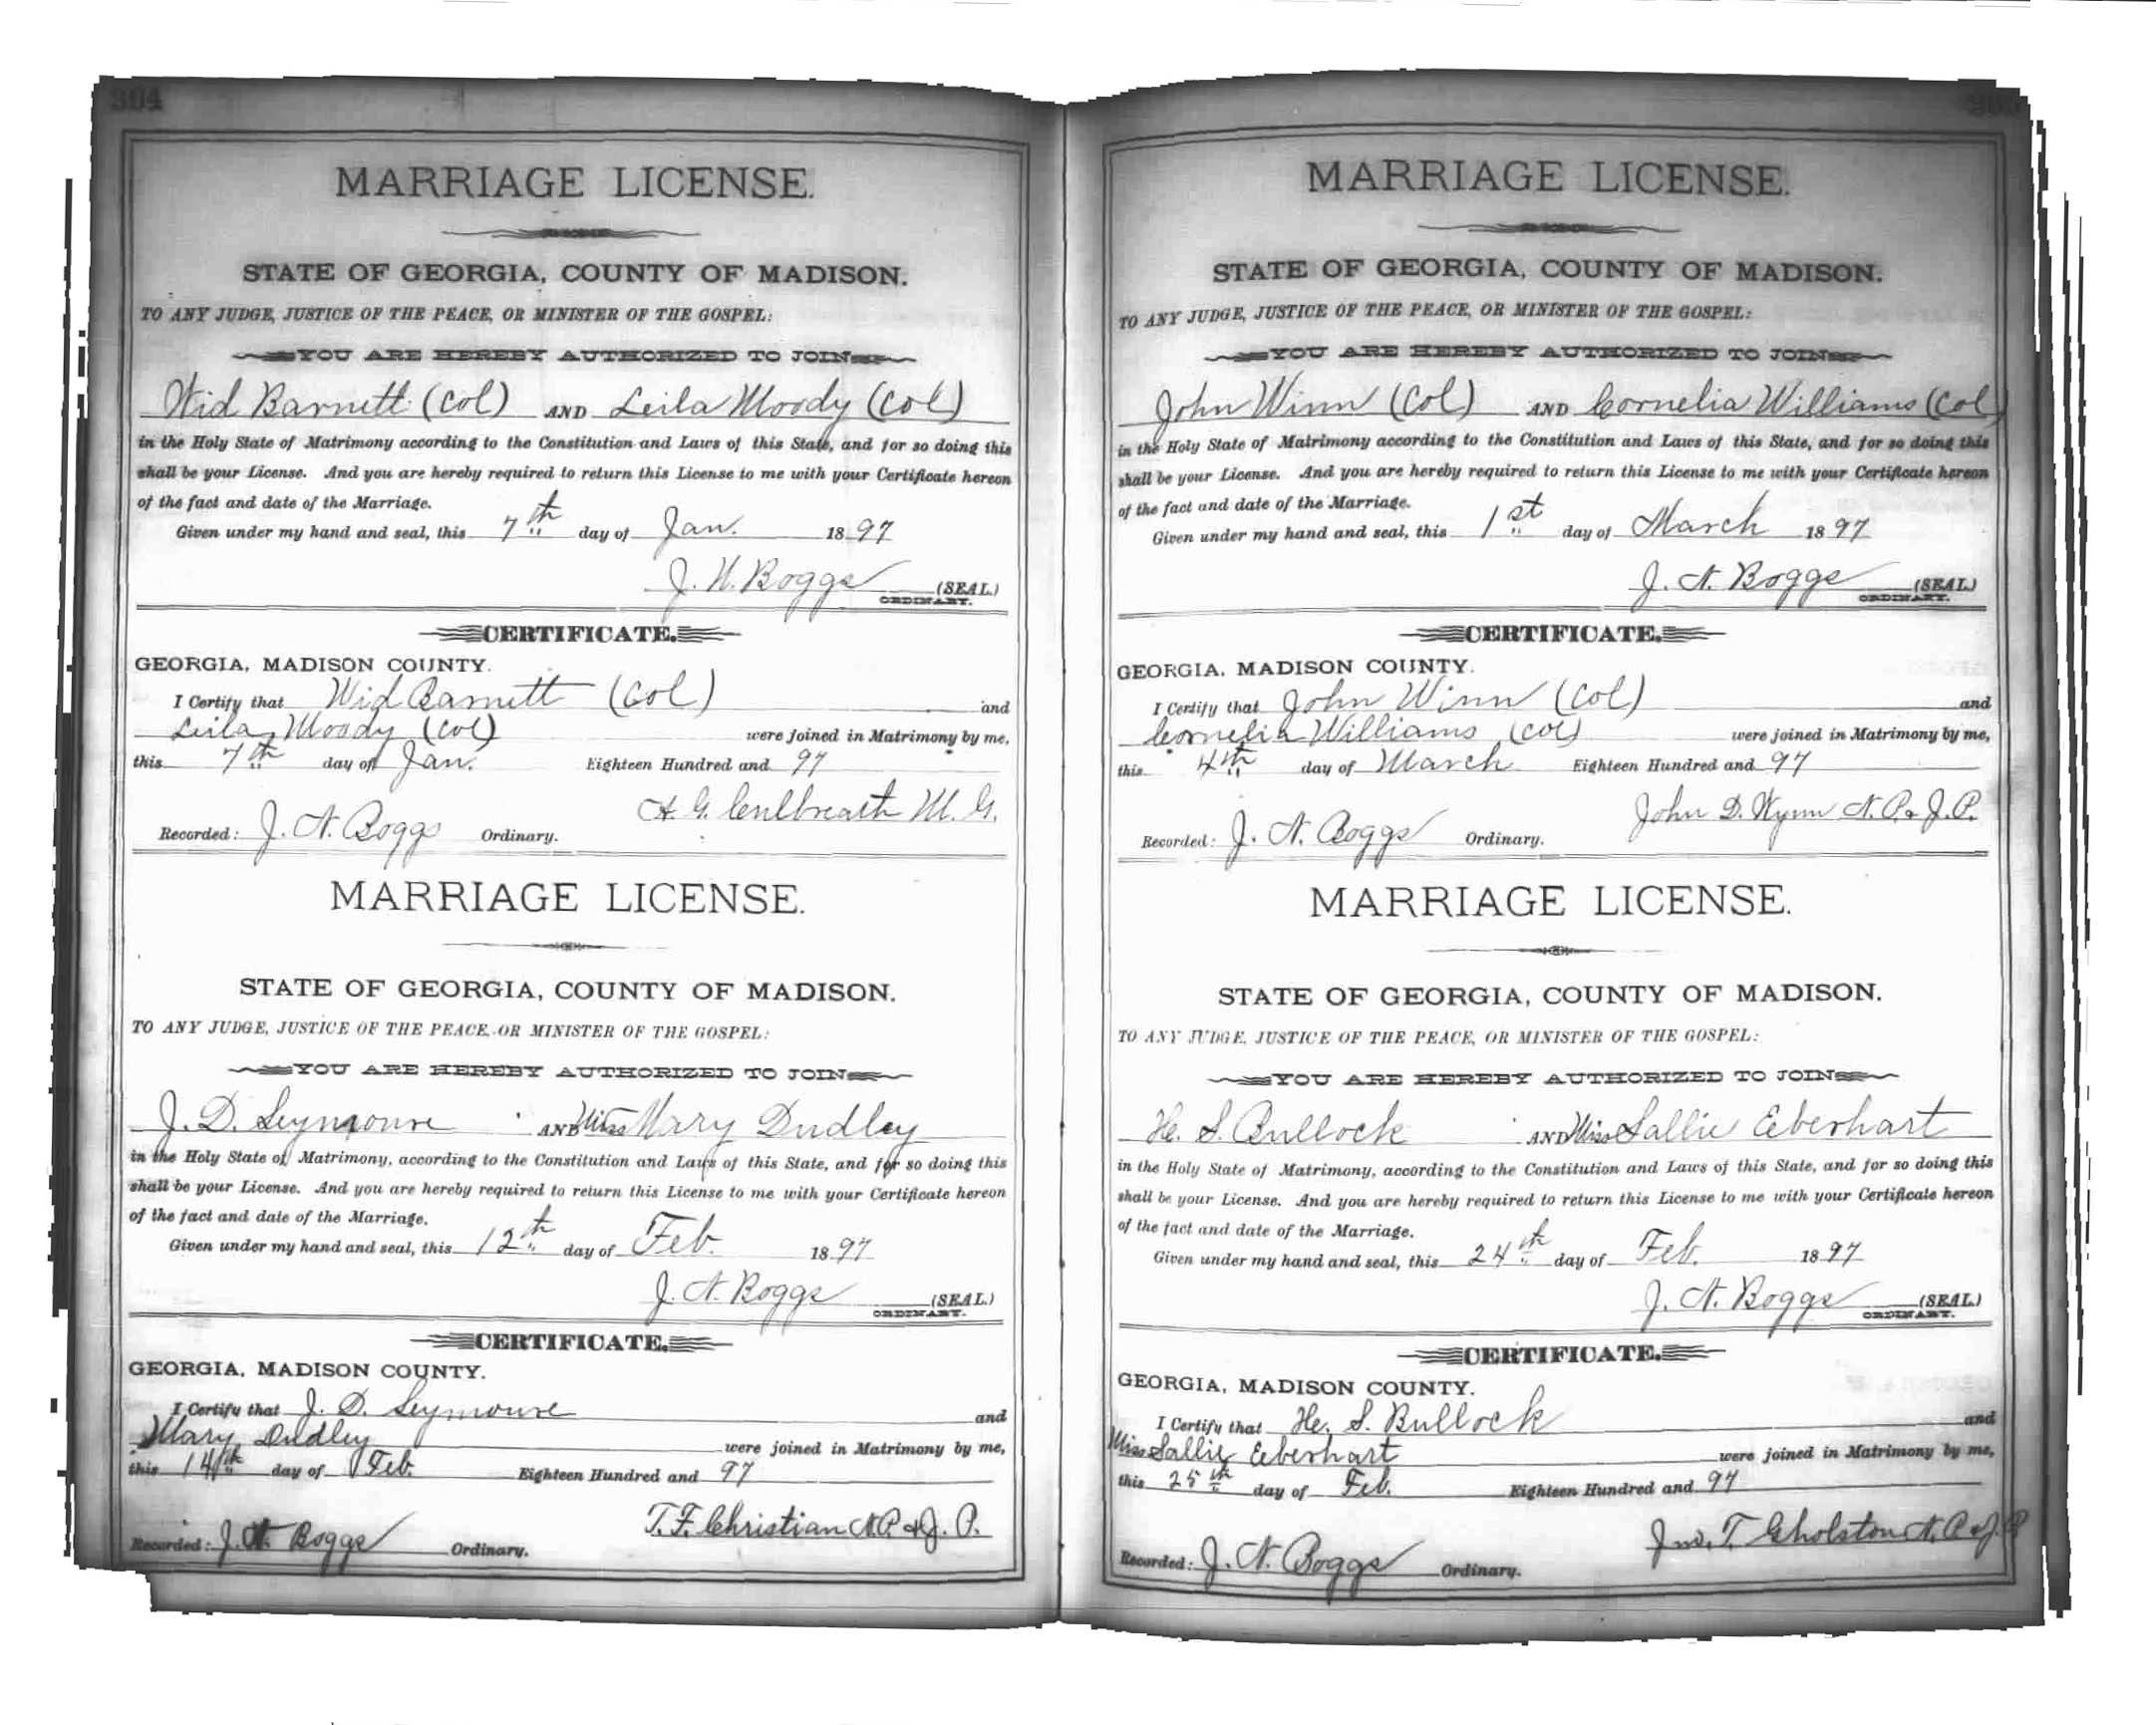 304
MARRIAGE LICENSE.
STATE OF GEORGIA, COUNTY OF MADISON.
TO ANY JUDGE, JUSTICE OF THE PEACE, OR MINISTER OF THE GOSPEL:
YOU ARE HEREBY AUTHORIZED TO JOIN
Wid Barnett (Col) AND Leila Moody (Col)
in the Holy State of Matrimony according to the Constitution and Laws of this State, and for so doing this
shall be your License. And you are hereby required to return this License to me with your Certificate hereon
of the fact and date of the Marriage.
Given under my hand and seal, this 7th day of Jan. 1897
J. N. Boggs (SEAL)
ORDINARY.
CERTIFICATE.
GEORGIA, MADISON COUNTY.
I Certify that Wid Barnett (Col) and
Leila Moody (Col) were joined in Matrimony by me,
this 7th day of Jan. Eighteen Hundred and 97
H. G. Culbreath M. G.
Recorded: J. N. Boggs Ordinary.
MARRIAGE LICENSE.
STATE OF GEORGIA, COUNTY OF MADISON.
TO ANY JUDGE, JUSTICE OF THE PEACE, OR MINISTER OF THE GOSPEL:
YOU ARE HEREBY AUTHORIZED TO JOIN
J. D. Seymoure AND Miss Mary Dudley
in the Holy State of Matrimony, according to the Constitution and Laws of this State, and for so doing this
shall be your License. And you are hereby required to return this License to me with your Certificate hereon
of the fact and date of the Marriage.
Given under my hand and seal, this 12th day of Feb. 1897
J. N. Boggs (SEAL)
ORDINARY.
CERTIFICATE.
GEORGIA, MADISON COUNTY.
I Certify that J. D. Seymoure and
Mary Dudley were joined in Matrimony by me,
this 14th day of Feb. Eighteen Hundred and 97
T. F. Christian N.P. & J. P.
Recorded: J. N. Boggs Ordinary.
MARRIAGE LICENSE.
STATE OF GEORGIA, COUNTY OF MADISON.
TO ANY JUDGE, JUSTICE OF THE PEACE, OR MINISTER OF THE GOSPEL:
YOU ARE HEREBY AUTHORIZED TO JOIN
John Winn (Col) AND Cornelia Williams (Col)
in the Holy State of Matrimony according to the Constitution and Laws of this State, and for so doing this
shall be your License. And you are hereby required to return this License to me with your Certificate hereon
of the fact and date of the Marriage.
Given under my hand and seal, this 1st day of March 1897
J. N. Boggs (SEAL)
ORDINARY.
CERTIFICATE.
GEORGIA, MADISON COUNTY.
I Certify that John Winn (Col) and
Cornelia Williams (Col) were joined in Matrimony by me,
this 4th day of March Eighteen Hundred and 97
John D. Wynn N. P. & J. P.
Recorded: J. N. Boggs Ordinary.
MARRIAGE LICENSE.
STATE OF GEORGIA, COUNTY OF MADISON.
TO ANY JUDGE, JUSTICE OF THE PEACE, OR MINISTER OF THE GOSPEL:
YOU ARE HEREBY AUTHORIZED TO JOIN
He. S. Bullock AND Miss Sallie Eberhart
in the Holy State of Matrimony, according to the Constitution and Laws of this State, and for so doing this
shall be your License. And you are hereby required to return this License to me with your Certificate hereon
of the fact and date of the Marriage.
Given under my hand and seal, this 24th day of Feb. 1897
J. N. Boggs (SEAL)
ORDINARY.
CERTIFICATE.
GEORGIA, MADISON COUNTY.
I Certify that He. S. Bullock and
Miss Sallie Eberhart were joined in Matrimony by me,
this 25th day of Feb. Eighteen Hundred and 97
Jno. T. Gholston N. P. & J. P.
Recorded: J. N. Boggs Ordinary.